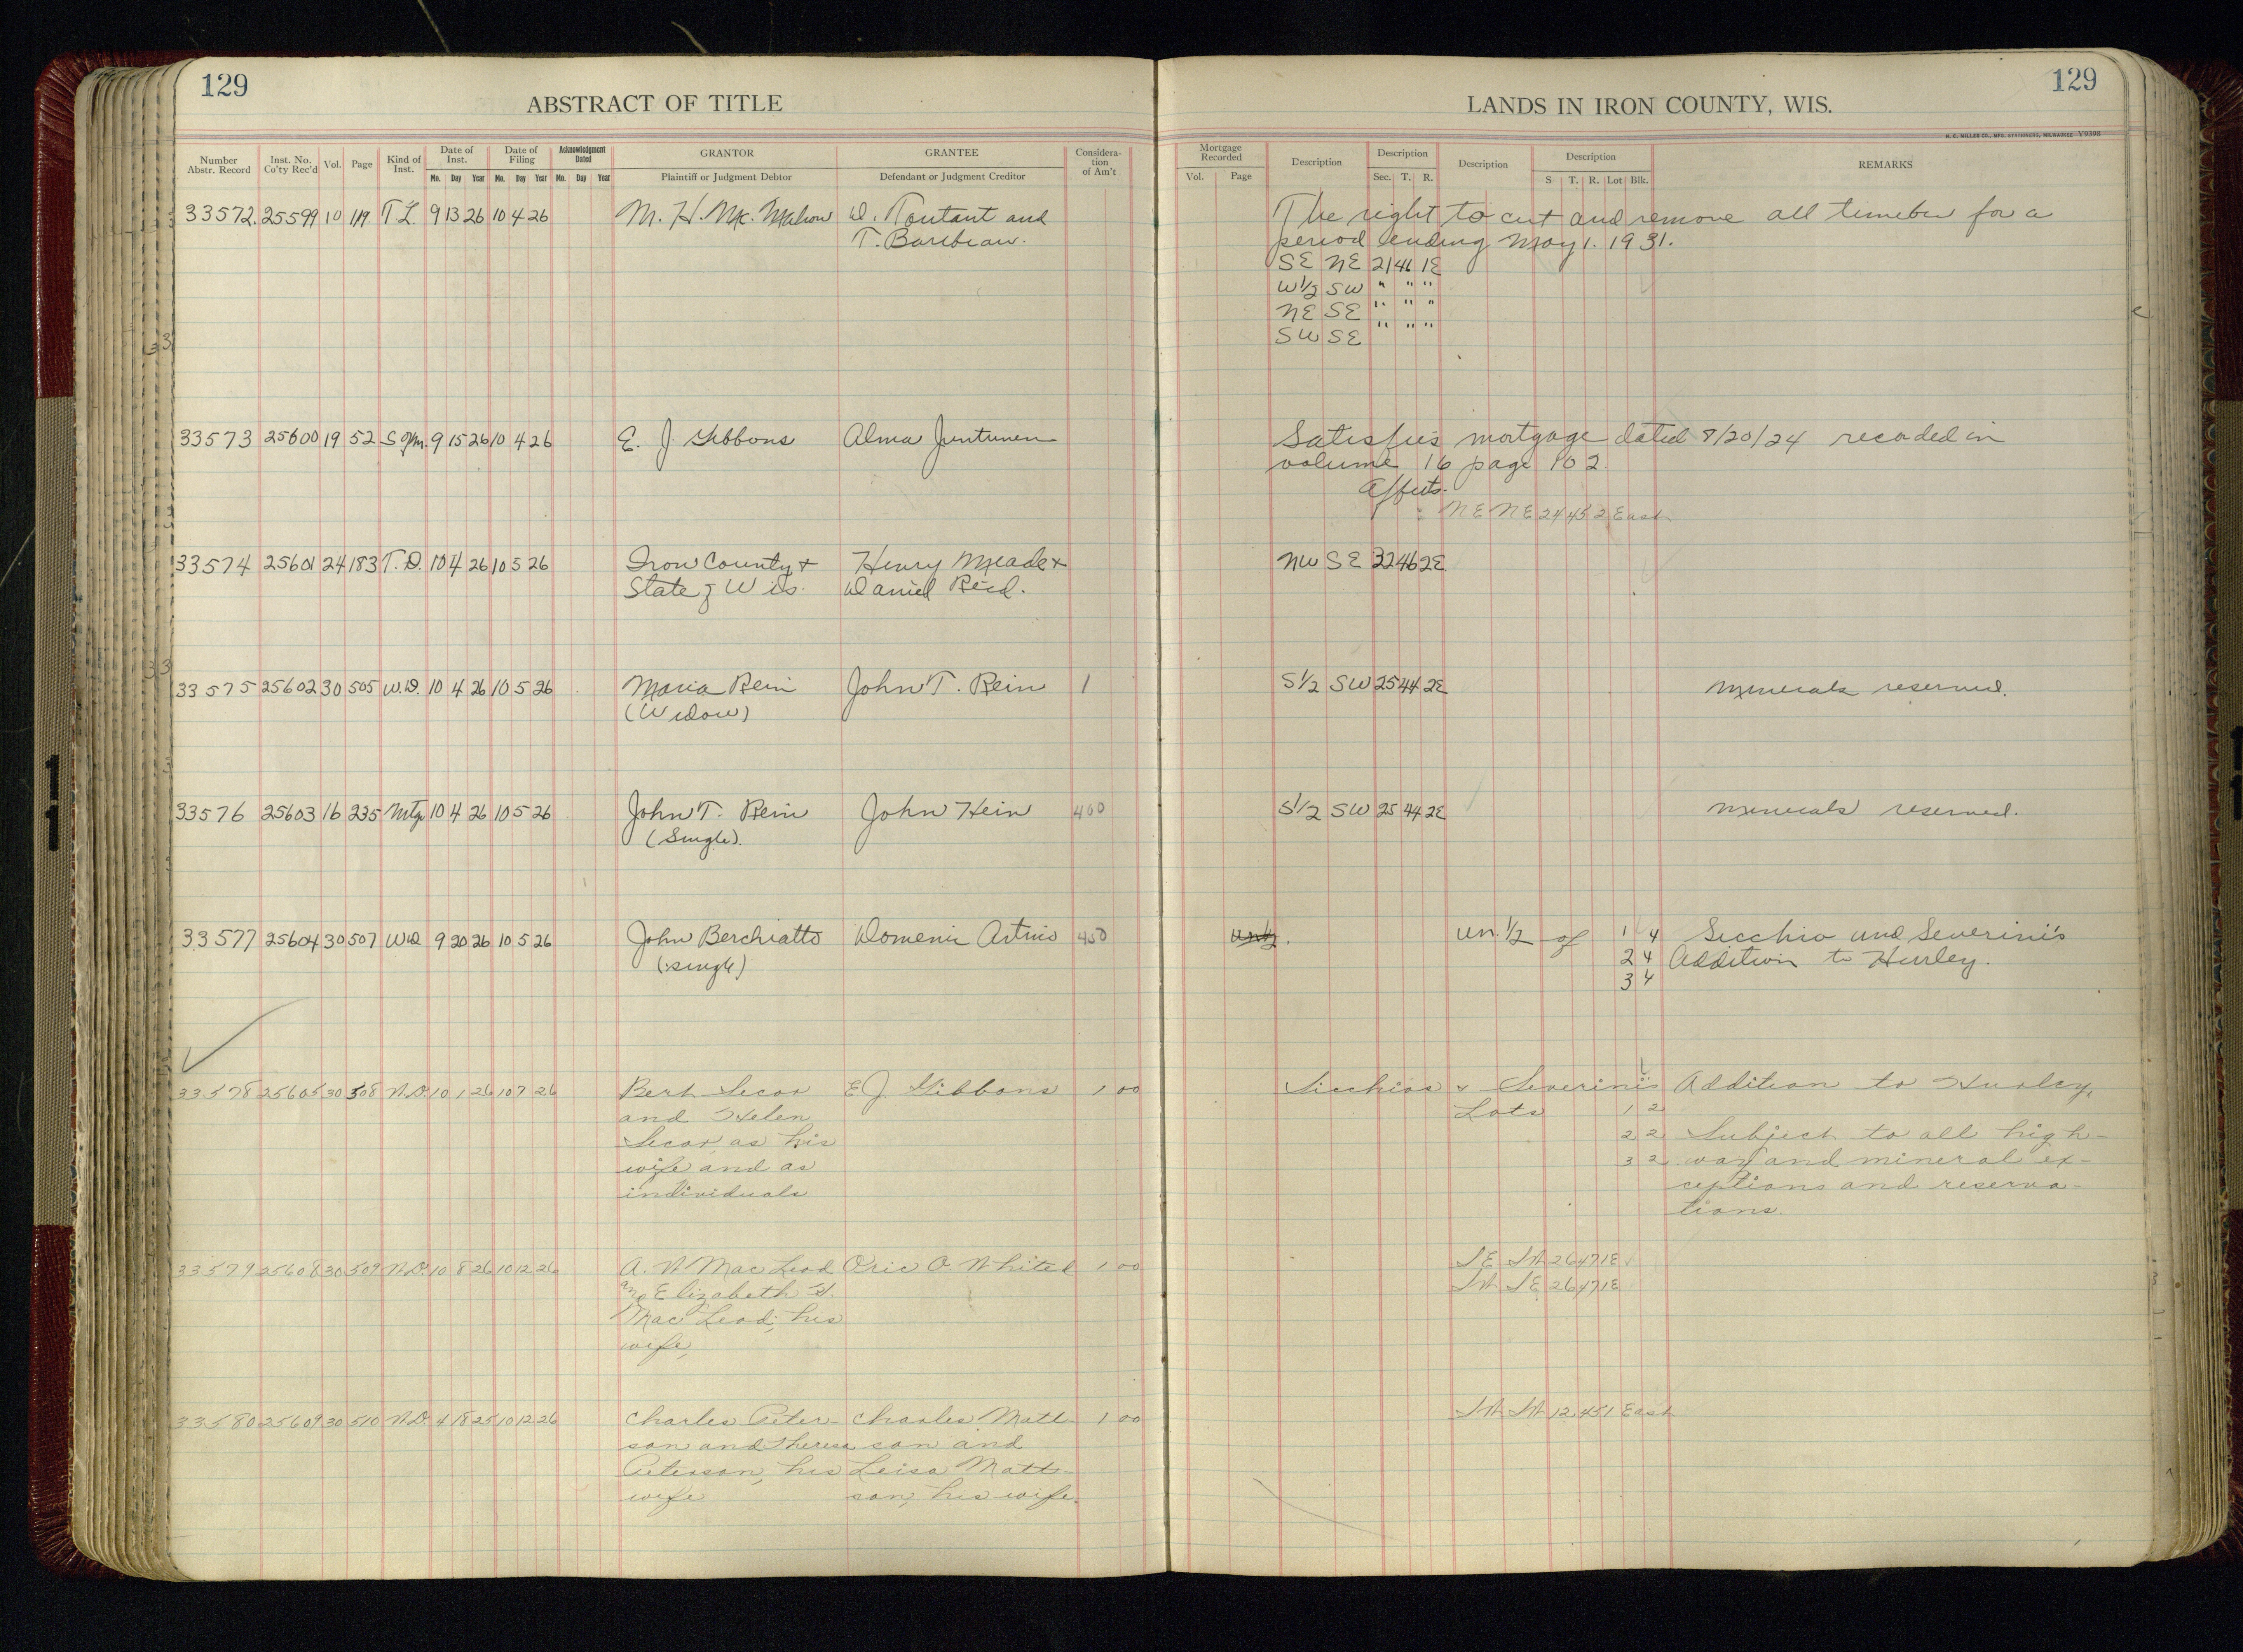 129
ABSTRACT OF TITLE
LANDS IN IRON COUNTY, WIS.
129
H. C. MILLER CO., MFG. STATIONERS, MILWAUKEE Y9398
Number Abstr. Record Inst. No. Co'ty Rec'd Vol. Page Kind of Inst. Date of Inst. Mo. Day Year Date of Filing Mo. Day Year Acknowledgment Dated Mo. Day Year GRANTOR Plaintiff or Judgment Debtor GRANTEE Defendant or Judgment Creditor Consideration of Am't Mortgage Recorded Vol. Page Description Description Sec. T. R. Description Description S T. R. Lot Blk. REMARKS
33572. 25599 10 119 T.L. 9 13 26 10 4 26 M. H. Mc. Mahon D. Toutant and The right to cut and remove all timeber for a
T. Barebeau. period ending May 1. 1931.
SE NE 21 46 1E
W½ SW " " "
NE SE " " "
SW SE " " "
33573 25600 19 52 S of M. 9 15 26 10 4 26 E. J. Gibbons Alma Juntunen Satisfies mortgage dated 8/20/24 recorded in
volume 16 page 102.
Affects.
NE NE 24 45 2 East
33574 25601 24 183 T.D. 10 4 26 10 5 26 Iron County + Henry Meade + NW SE 32 46 2E
State of Wis. Daniel Reid.
33575 25602 30 505 W.D. 10 4 26 10 5 26 Maria Rein John T. Rein 1 S½ SW 25 44 2E Minerals reserved.
(Widow)
33576 25603 16 235 Mtg 10 4 26 10 5 26 John T. Rein John Hein 400 S½ SW 25 44 2E Minerals reserved.
(Single).
33577 25604 30 507 WD 9 20 26 10 5 26 John Berchiatto Domenic 450 Un½. Un.½ of 1 4 Secchio and Severini's
(single) 2 4 Addition to Hurley.
3 4
33578 25605 30 508 W.D. 10 1 26 10 7 26 Bert Secor E. J. Gibbons 1 00 Sicchios & Severini's Addition to Hurley,
and Helen Lots 1 2
Secor, as his 2 2 Subject to all high-
wife and as 3 2 way and mineral ex-
individuals ceptions and reserva-
tions.
33579 25608 30 509 W.D. 10 8 26 10 12 26 A. W Mac Leod Oric O Whited 1 00 SE SW 26 47 1E
and Elizabeth H. SW SE 26 47 1E
Mac Leod; his
wife,
33580 25609 30 510 W.D. 4 18 25 10 12 26 Charles Peter- Charles Matt- 1 00 SW SW 12 45 1 East
son and Theresa son and
Peterson, his Leisa Matt-
wife son, his wife.